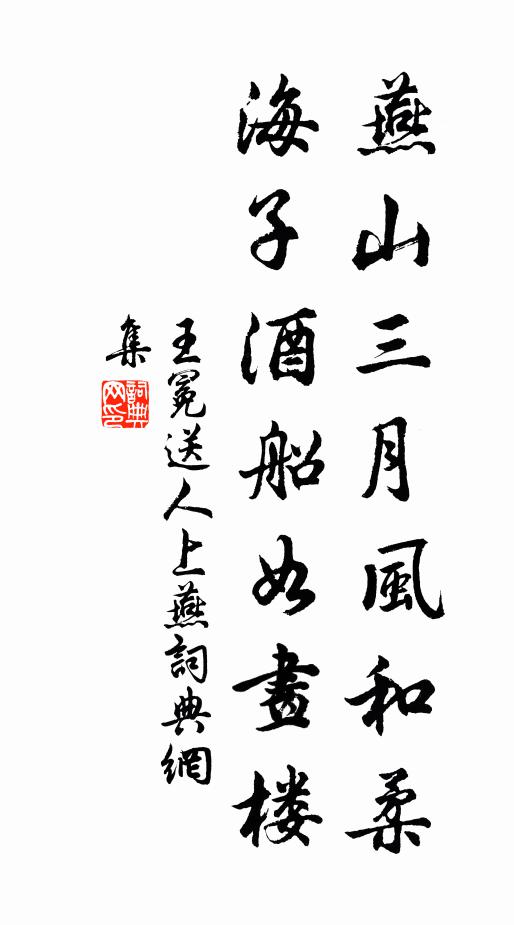 燕山三月風和柔
海子酒船如畫楼
王冕送人上燕詞典網
集
詞典網印